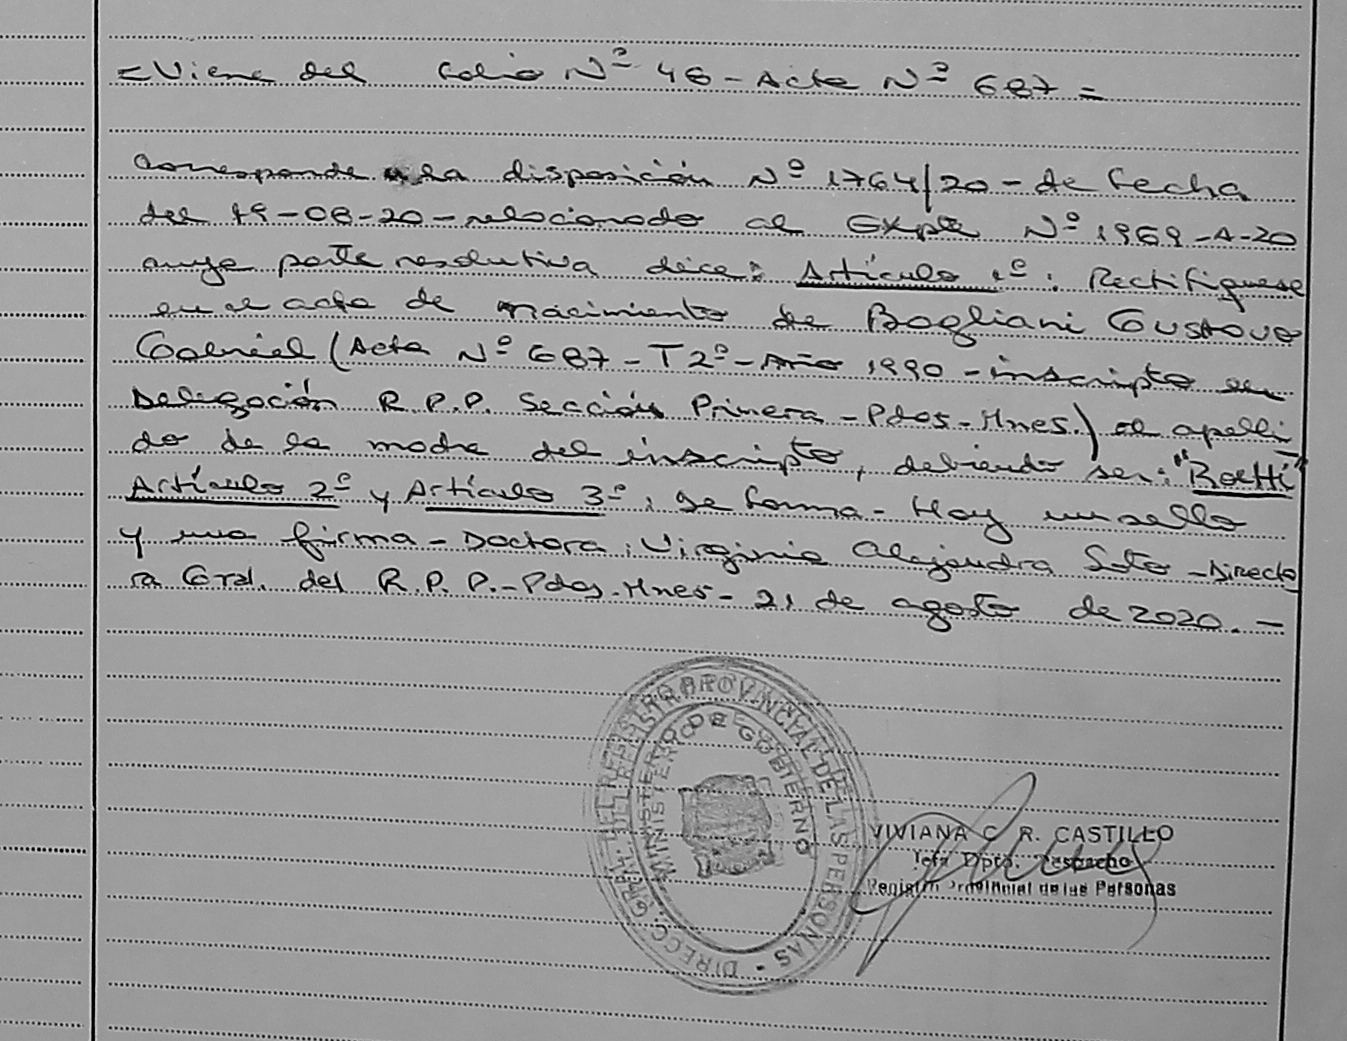 =Viene del Folio Nº 46 - Acta Nº 687 =
Corresponde a la disposición Nº 1764/20 - de fecha
del 19-08-20 - relacionado al Expte Nº 1969-A-20
cuya parte resolutiva dice: Artículo 1º: Rectifiquese
en el acta de nacimiento de Bogliani Gustavo
Gabriel (Acta Nº 687 - T 2º - Año 1990 - inscripto en
Delegación R.P.P. Sección Primera - Pdas - Mnes.) el apelli
do de la madre del inscripto, debiendo ser: "Boetti"
Artículo 2º y Artículo 3º: de forma - Hay un sello
y una firma - Doctora: Virginia Alejandra Soto - Directo
ra Gral. del R.P.P. - Pdas. Mnes - 21 de agosto de 2020. -
DIRECC. GRAL. DEL REGISTRO PROVINCIAL DE LAS PERSONAS -
MINISTERIO DE GOBIERNO
VIVIANA C. R. CASTILLO
Jefa Dpto. Despacho
Registro Provincial de las Personas